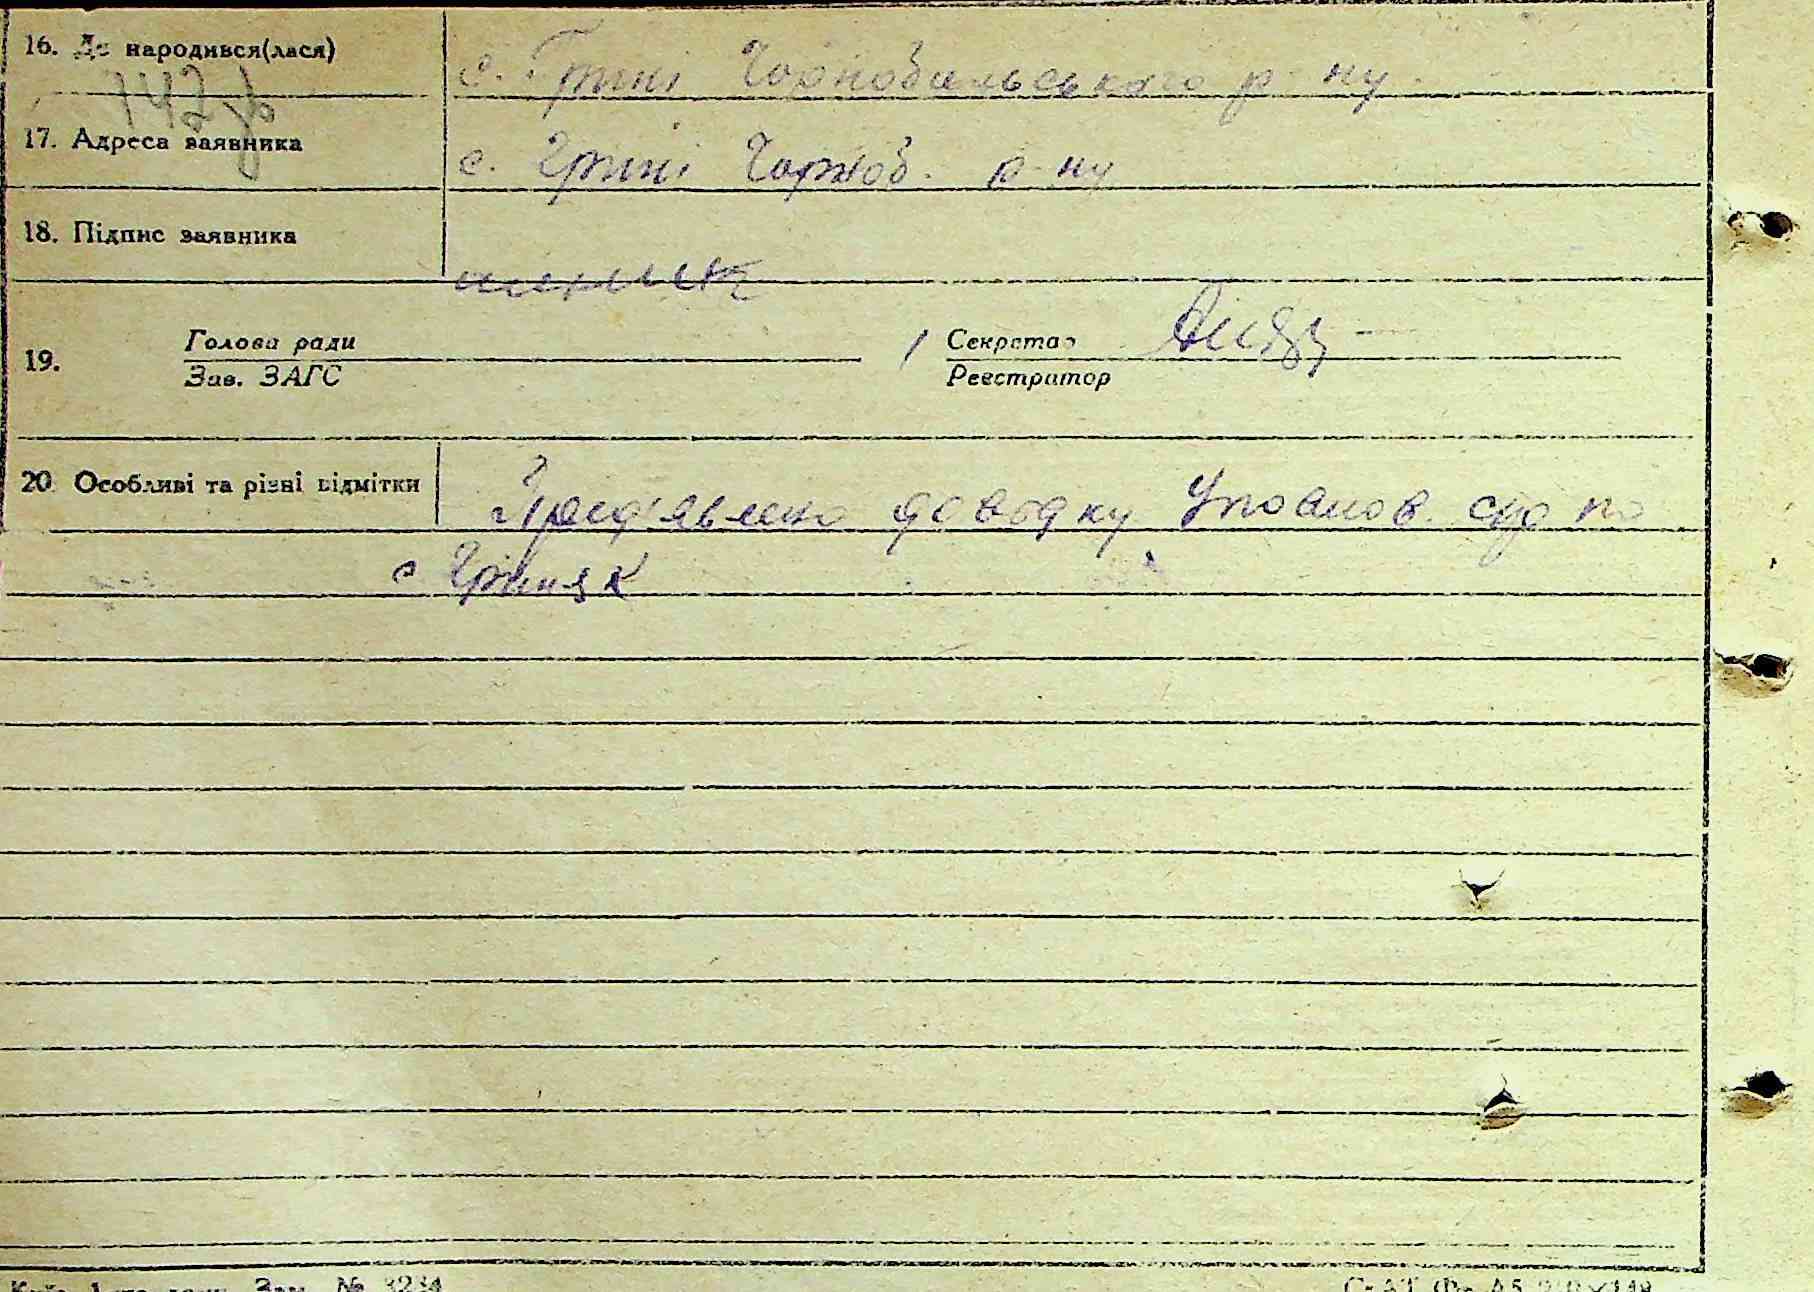 16. Де народився(лася) с. Грині Чорнобильського р-ну.
142
17. Адреса заявника с. Грині Чорноб. р-ну
18. Підпис заявника
19. Голова ради Секретар
Зав. ЗАГС Реєстратор
20 Особливі та різні відмітки Пред'явлено довідку Уповнов. по
с Гриняк
Зам. № 3234